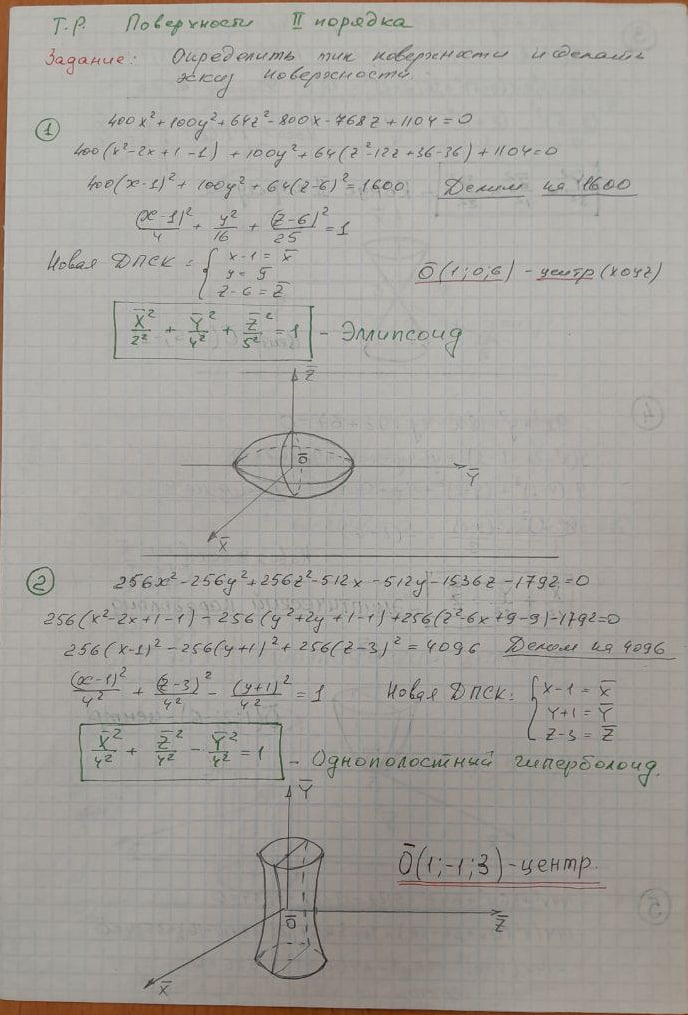 Т.Р. Поверхности II порядка
Задание: Определить тип поверхности и сделать
эскиз поверхности.
1
400x²+100y²+64z²-800x-768z+1104=0
400(x²-2x+1-1)+100y²+64(z²-12z+36-36)+1104=0
400(x-1)²+100y²+64(z-6)²=1600 Делим на 1600
(x-1)²/4 + y²/16 + (z-6)²/25 = 1
Новая ДПСК: { x-1=x̄
y=ȳ
z-6=z̄
Ō(1;0;6) - центр (xoyz)
X̄²/2² + Ȳ²/4² + Z̄²/5² = 1 - Эллипсоид
Z̄
Ō
Ȳ
X̄
2
256x²-256y²+256z²-512x-512y-1536z-1792=0
256(x²-2x+1-1)-256(y²+2y+1-1)+256(z²-6x+9-9)-1792=0
256(x-1)²-256(y+1)²+256(z-3)²=4096 Делим на 4096
(x-1)²/4² + (z-3)²/4² - (y+1)²/4² = 1
Новая ДПСК: { x-1=X̄
y+1=Ȳ
z-3=Z̄
X̄²/4² + Z̄²/4² - Ȳ²/4² = 1 - Однополостный гиперболоид.
Ȳ
Ō(1;-1;3)-центр.
Ō
Z̄
X̄